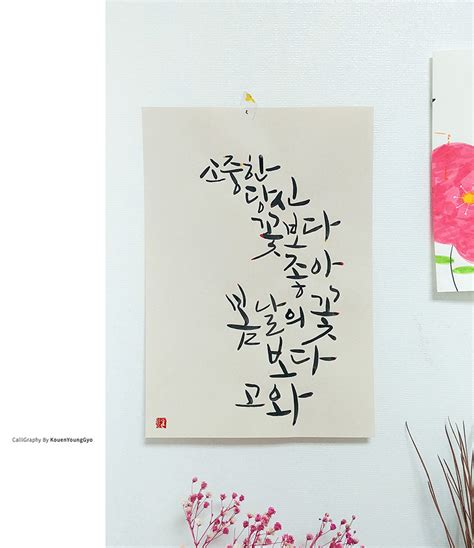 소중한
당신
꽃보다
좋아
봄날의꽃
보다
고와
CalliGraphy By KouenYoungGyo